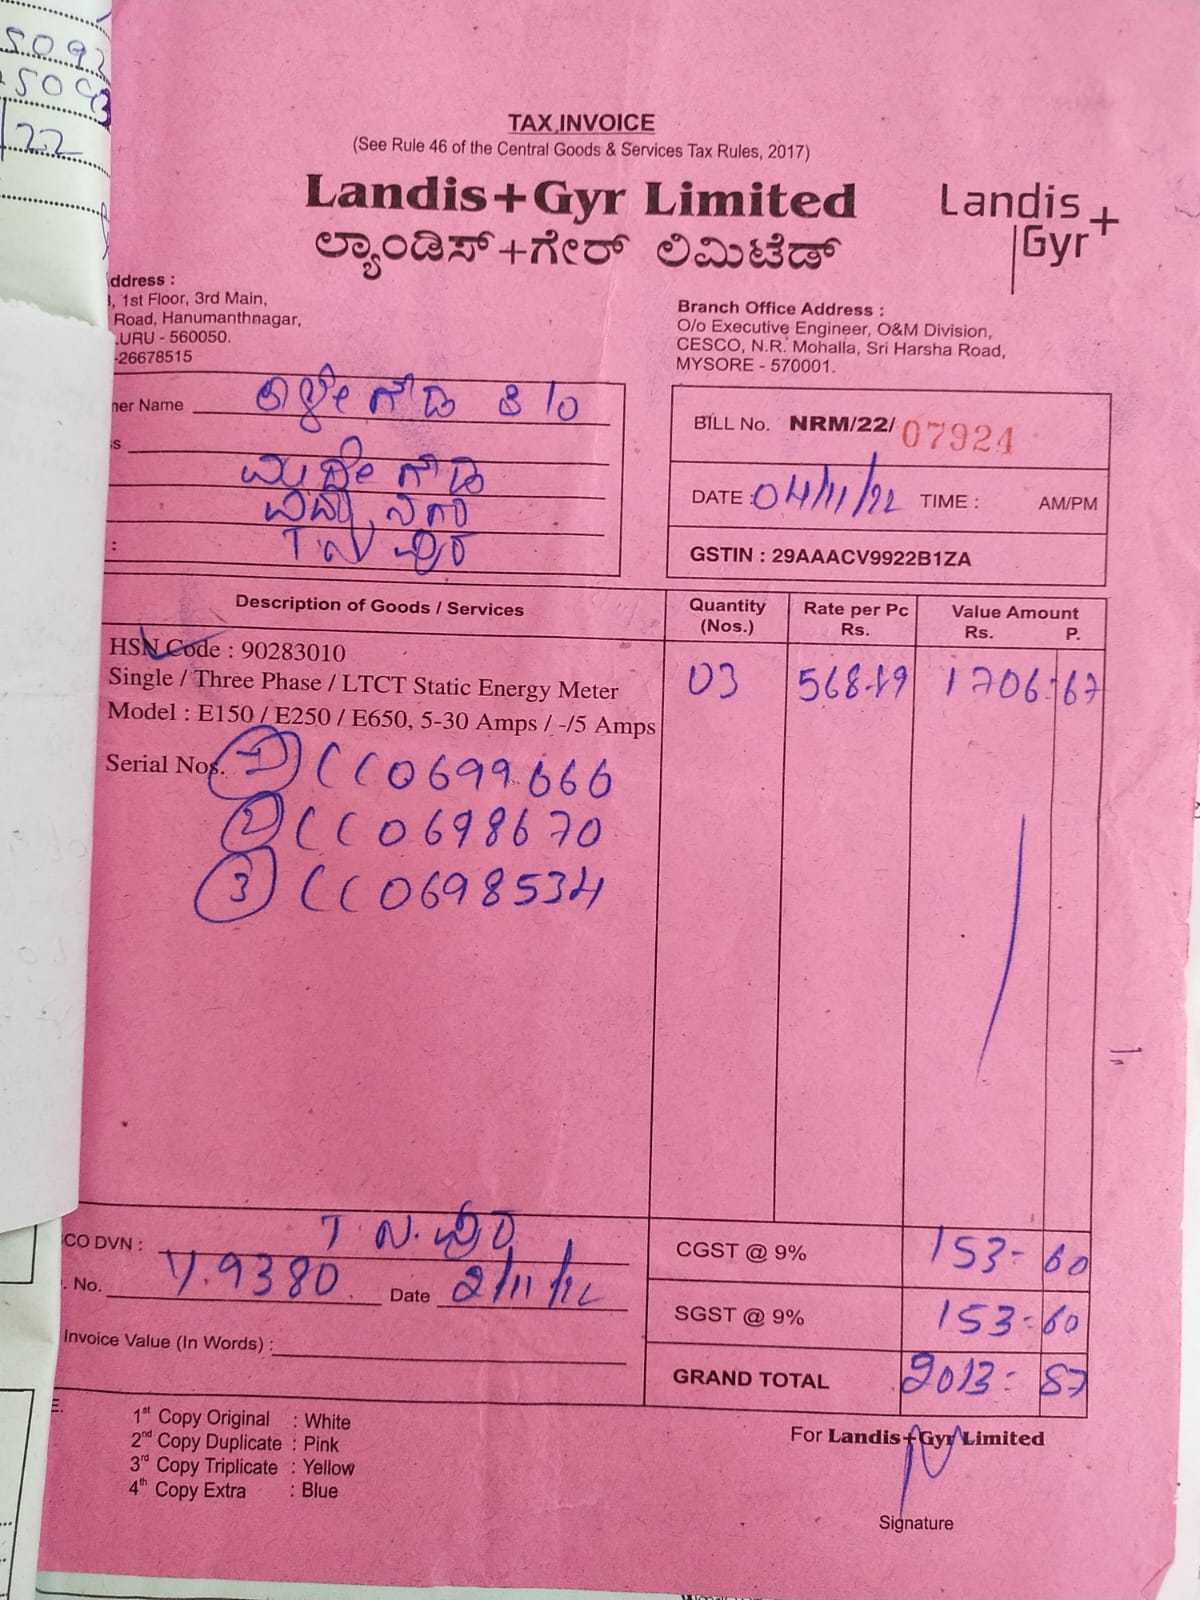 5092
22
TAX INVOICE
(See Rule 46 of the Central Goods & Services Tax Rules, 2017)
Landis+Gyr Limited
ಲ್ಯಾಂಡಿಸ್+ಗೇರ್ ಲಿಮಿಟೆಡ್
Landis
Gyr+
ddress :
, 1st Floor, 3rd Main,
Road, Hanumanthnagar,
URU - 560050.
-26678515
Branch Office Address :
O/o Executive Engineer, O&M Division,
CESCO, N.R. Mohalla, Sri Harsha Road,
MYSORE - 570001.
ner Name ಕಾಳೇಗೌಡ S/O
s
ಮುದ್ದೇಗೌಡ
ವಿದ್ಯಾನಗರ
T.ನ.ಪುರ
:
BILL No. NRM/22/ 07924
DATE : 04/11/22 TIME : AM/PM
GSTIN : 29AAACV9922B1ZA
Description of Goods / Services Quantity (Nos.) Rate per Pc Rs. Value Amount Rs. P.
HSN Code : 90283010
Single / Three Phase / LTCT Static Energy Meter 03 568.89 1706.67
Model : E150 / E250 / E650, 5-30 Amps / -/5 Amps
Serial Nos. 1 CC0699666
2 CC0698670
3 CC0698534
CO DVN : T.ನ.ಪುರ
. No. Y.9380 Date 2/11/22
Invoice Value (In Words) :
CGST @ 9% 153-60
SGST @ 9% 153-60
GRAND TOTAL 2013-87
E.
1st Copy Original : White
2nd Copy Duplicate : Pink
3rd Copy Triplicate : Yellow
4th Copy Extra : Blue
For Landis+Gyr Limited
Signature